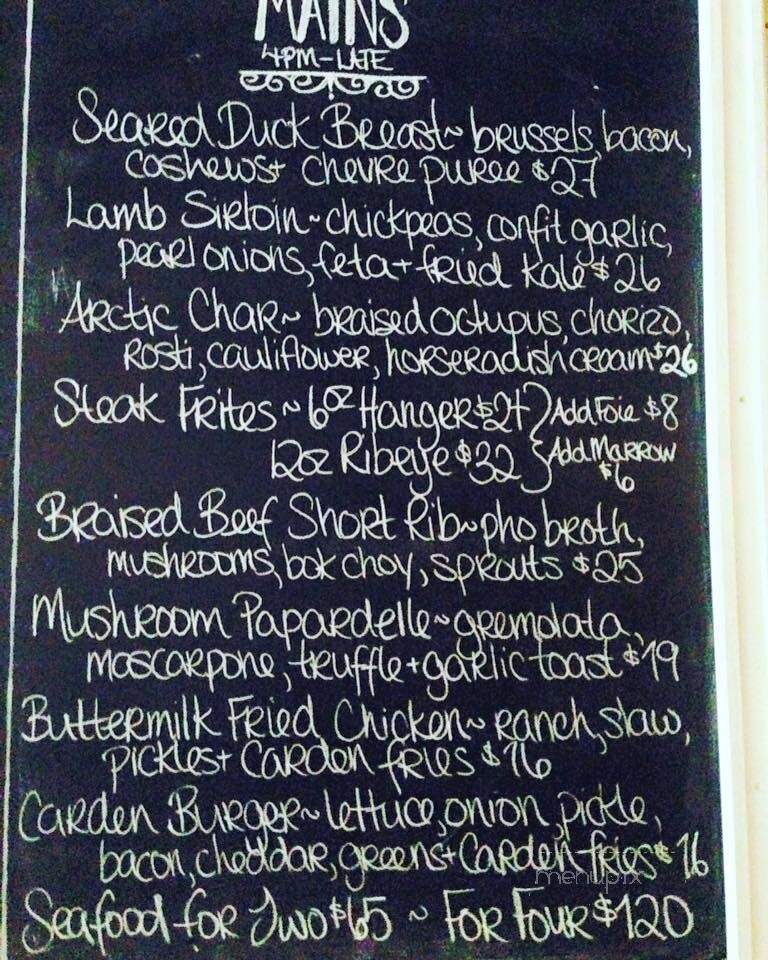 MAINS
4PM-LATE
Seared Duck Breast~ brussels, bacon,
cashews+ chevre puree $27
Lamb Sirloin~chickpeas, confit garlic,
pearl onions, feta + fried kale $26
Arctic Char~ braised octupus, chorizo,
rosti, cauliflower, horseradish cream $26
Steak Frites ~ 6oz Hanger $24 } Add Foie $8
12oz Ribeye $32 } Add Marrow
$6
Braised Beef Short Rib~pho broth,
mushrooms, bok choy, sprouts $25
Mushroom Papardelle~gremolata,
mascarpone, truffle + garlic toast $19
Buttermilk Fried Chicken~ ranch, slaw,
pickles+ Carden fries $16
Carden Burger~lettuce, onion, pickle,
bacon, cheddar, greens+ Carden fries $16
menupix
Seafood for Two $65 ~ For Four $120